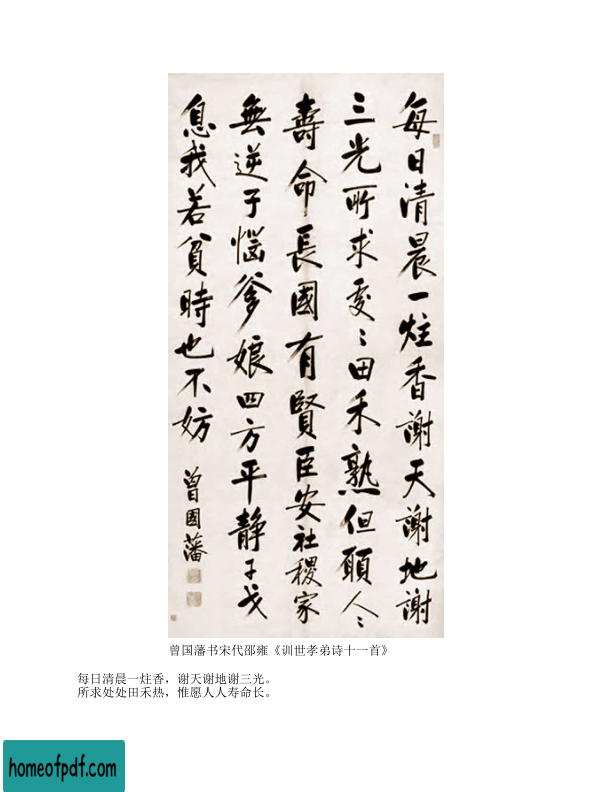 每日清晨一炷香謝天謝地謝
三光所求處〻田禾熟但願人〻
壽命長國有賢臣安社稷家
無逆子惱爹娘四方平靜干戈
息我若貧時也不妨
曾國藩
曾国藩书宋代邵雍《训世孝弟诗十一首》
每日清晨一炷香，谢天谢地谢三光。
所求处处田禾热，惟愿人人寿命长。
homeofpdf.com